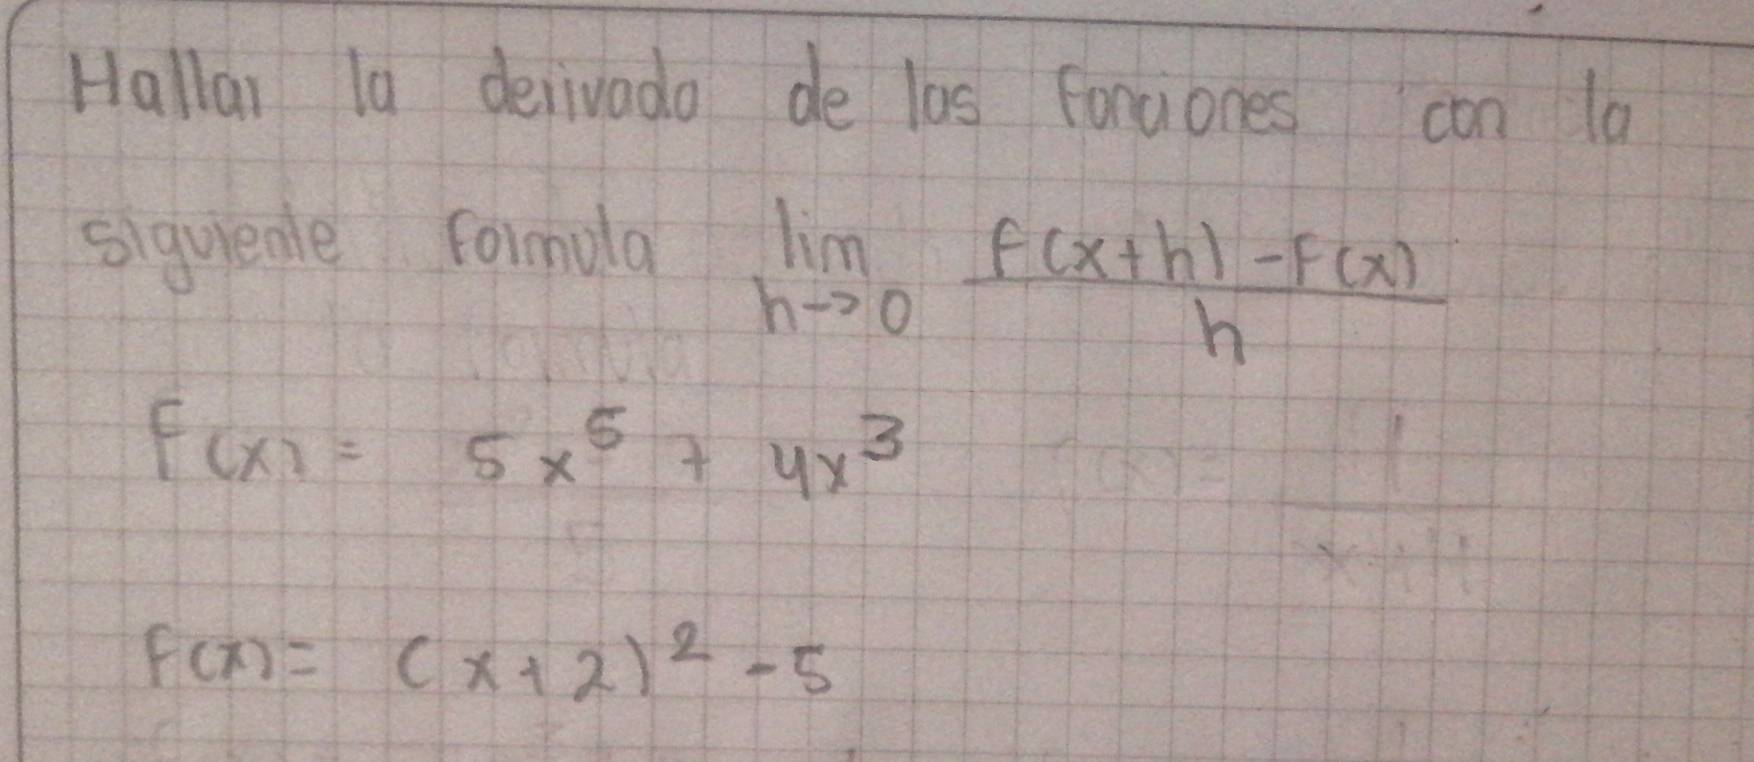 Hallar la derivada de las funciones con la
siguiente formula lim h->0 f(x+h)-f(x) / h
f(x)= 5x^5 + 4x^3
f(x)= (x+2)^2 -5